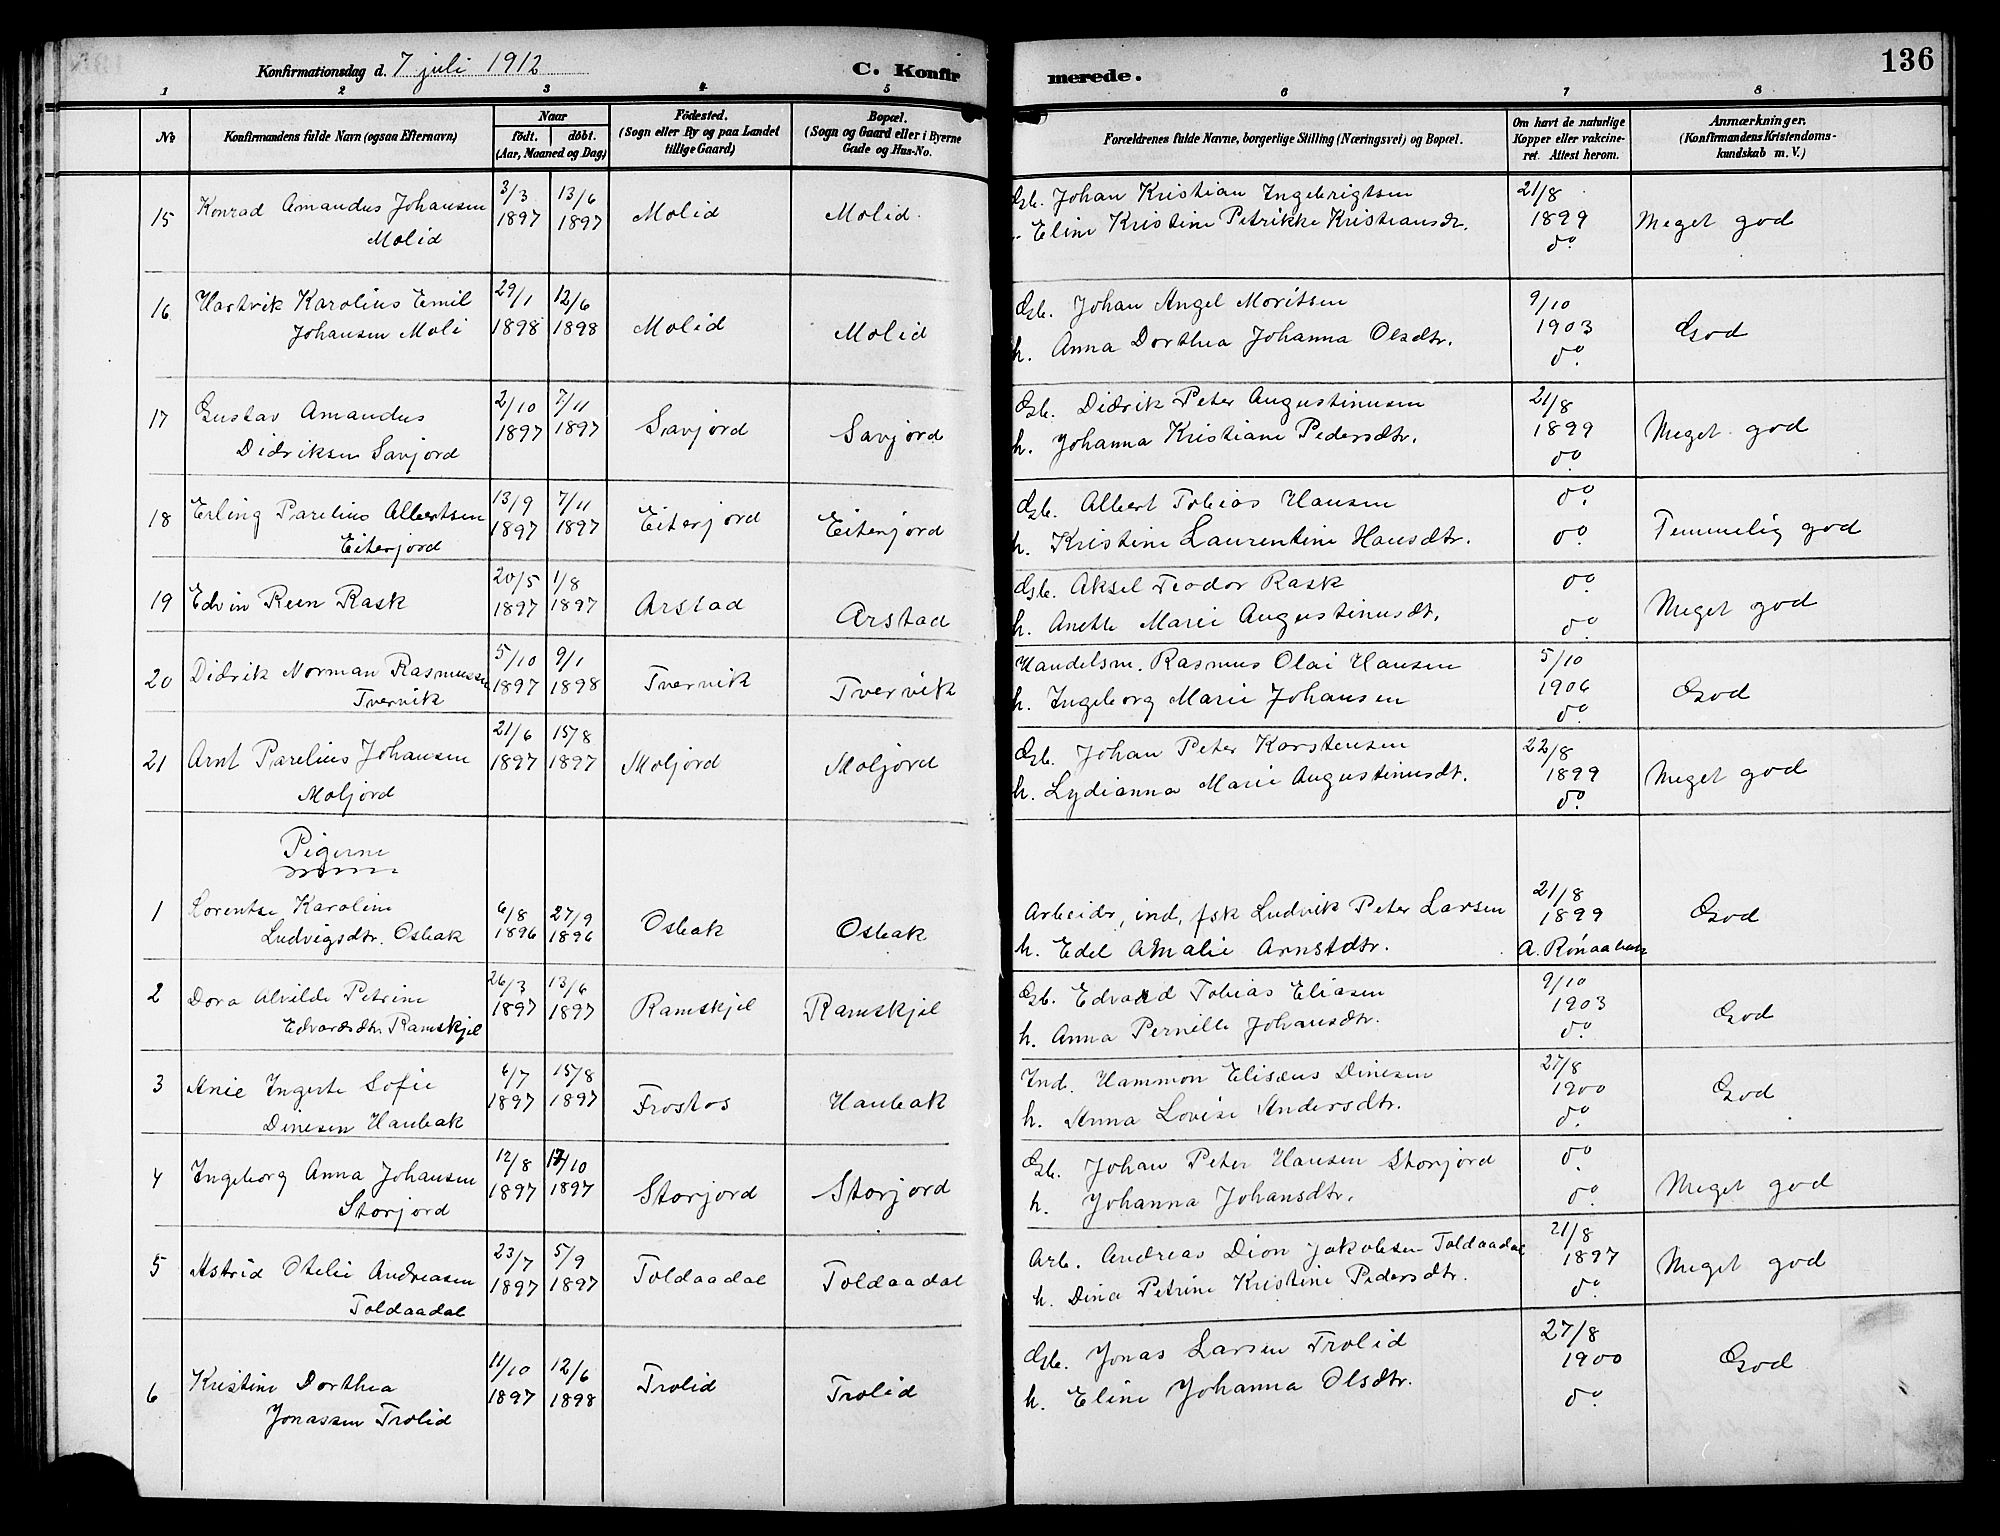 136
Konfirmationsdag d. 7 juli 1912
C. Konfirmerede.
1 2 3 4 5 6 7 8
No
Konfirmandens fulde Navn (ogsaa Efternavn)
Naar
födt. döbt.
(Aar, Maaned og Dag)
Födested.
(Sogn eller By og paa Landet
tillige Gaard)
Bopæl.
(Sogn og Gaard eller i Byerne
Gade og Hus-No.
Forældrenes fulde Navne, borgerlige Stilling (Næringsvei) og Bopæl.
Om havt de naturlige
Kopper eller vakcine-
ret. Attest herom.
Anmærkninger.
(Konfirmandens Kristendoms-
kundskab m. V.)
15 Konrad Amandus Johansen 3/3 13/6 Gb. Johan Kristian Ingebrigtsen 21/8
Molid 1897 1897 Molid Molid. " Eline Kristine Petrikke Kristiansdr. 1899 Meget god
do.
16 Hartvik Karolius Emil 29/1 12/6 Gb. Johan Angel Moritsen 9/10
Johansen Moli 1898 1898 Molid Molid h. Anna Dorthea Johanna Olsdtr. 1903 God
do.
17 Gustav Amandus 2/10 7/11 Gb. Didrik Peter Augustinusen 21/8
Didriksen Savjord 1897 1897 Savjord Savjord h. Johanna Kristiane Pedersdtr. 1899 Meget god
do.
18 Erling Parelius Albertsen 13/9 7/11 Gb. Albert Tobias Hansen do.
Eiterjord 1897 1897 Eiterjord Eiterjord h. Kristine Laurentine Hansdtr. do. Temmelig god
19 Edvin Reen Rask 20/5 1/8 Gb. Aksel Teodor Rask do.
1897 1897 Arstad Arstad h. Anette Marie Augustinusdt. do. Meget god
20 Didrik Norman Rasmussen 5/10 9/1 Handelsm. Rasmus Olai Hansen 5/10
Tvervik 1897 1898 Tvervik Tvervik h. Ingeborg Marie Johansen 1906 God
do.
21 Arnt Parelius Johansen 21/6 15/8 Gb. Johan Peter Karstensen 22/8
Moljord 1897 1897 Moljord Moljord h. Lydianna Marie Augustinusdt. 1899 Meget god
do.
Pigerne
1 Lorentse Karoline 6/8 27/9 Arbeidr, ind, fsk Ludvik Peter Larsen 21/8 1899
Ludvigsdtr. Osbak 1896 1896 Osbak Osbak h. Edel Amalie Arnstdtr. A. God
2 Dora Alvilde Petrine 26/3 13/6 Gb. Edvard Tobias Eliasen 9/10
Edvardsdtr Ramskjel 1897 1897 Ramskjel Ramskjel h. Anna Pernille Johansdtr. 1903 God
do.
3 Anie Ingerte Sofie 6/7 15/8 Ind. Hammon Elisæus Dinesen 27/8
Dinesen Haubak 1897 1897 Frostos Haubak h. Anna Lovise Andersdtr. 1900 God
do.
4 Ingeborg Anna Johansen 12/8 /10 Gb. Johan Peter Hansen Storjord do.
Storjord 1897 1897 Storjord Storjord h. Johanna Johansdtr. do. Meget god
5 Astrid Otelie Andreasen 23/7 5/9 Arb. Andreas Dion Jakobsen Toldaadal 21/8
Toldaadal 1897 1897 Toldaadal Toldaadal h. Dina Petrine Kristine Pedersdtr. 1897 Meget god
do.
6 Kristine Dorthea 11/10 12/6 Gb. Jonas Larsen Trolid 27/8
Jonassen Trolid 1897 1898 Trolid Trolid h. Eline Johanna Olsdtr. 1900 God
do.